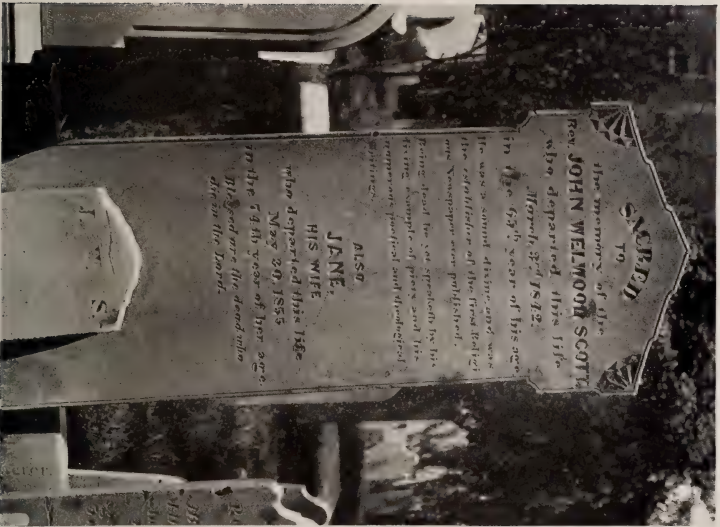 SACRED
TO
the memory of the
Rev. JOHN WELWOOD SCOTT,
who departed this life
March 1842,
in the 65th year of his age
He was a sound divine and was
the establisher of the first Religi
ous Newspaper ever published.
Being dead he yet speaketh by his
living example of piety and his
numerous poetical and theological
writings.
ALSO
JANE,
HIS WIFE
who departed this life
May 20, 1855
in the 74th year of her age.
Blessed are the dead who
die in the Lord.
J. W. S.